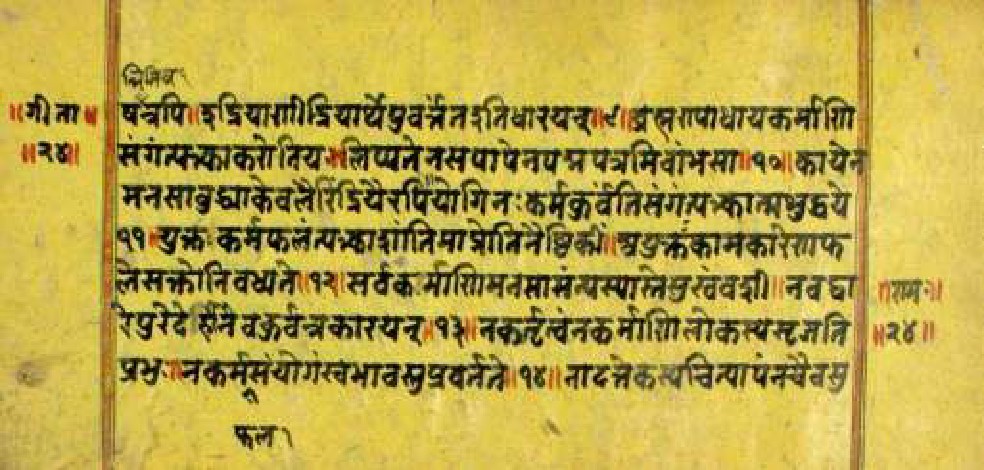 न्निमिष
॥गीता॥
॥२४॥
षन्नपि॥इंद्रियाणींद्रियार्थेषुवर्त्तंतइतिधारयन्॥९॥ब्रह्मण्याधायकर्माणि
संगंत्यक्त्वाकरोतियः॥लिप्यतेनसपापेनपद्मपत्रमिवांभसा॥१०॥कायेन
मनसाबुद्ध्याकेवलैरिंद्रियैरपि॥योगिनःकर्मकुर्वंतिसंगंत्यक्त्वात्मशुद्धये
११॥युक्तःकर्मफलंत्यक्त्वाशांतिमाप्नोतिनैष्ठिकीं॥अयुक्तःकामकारेणफ
लेसक्तोनिबध्यते॥१२॥सर्वकर्माणिमनसासंन्यस्यास्तेसुखंवशी॥नवद्वा
रेपुरेदेहीनैवकुर्वन्नकारयन्॥१३॥नकर्तृत्वंनकर्माणिलोकस्यसृजति
प्रभुः॥नकर्मसंयोगंस्वभावस्तुप्रवर्तते॥१४॥नादत्तेकस्यचित्पापंनचैवसु
॥रामः॥
॥२४॥
फल